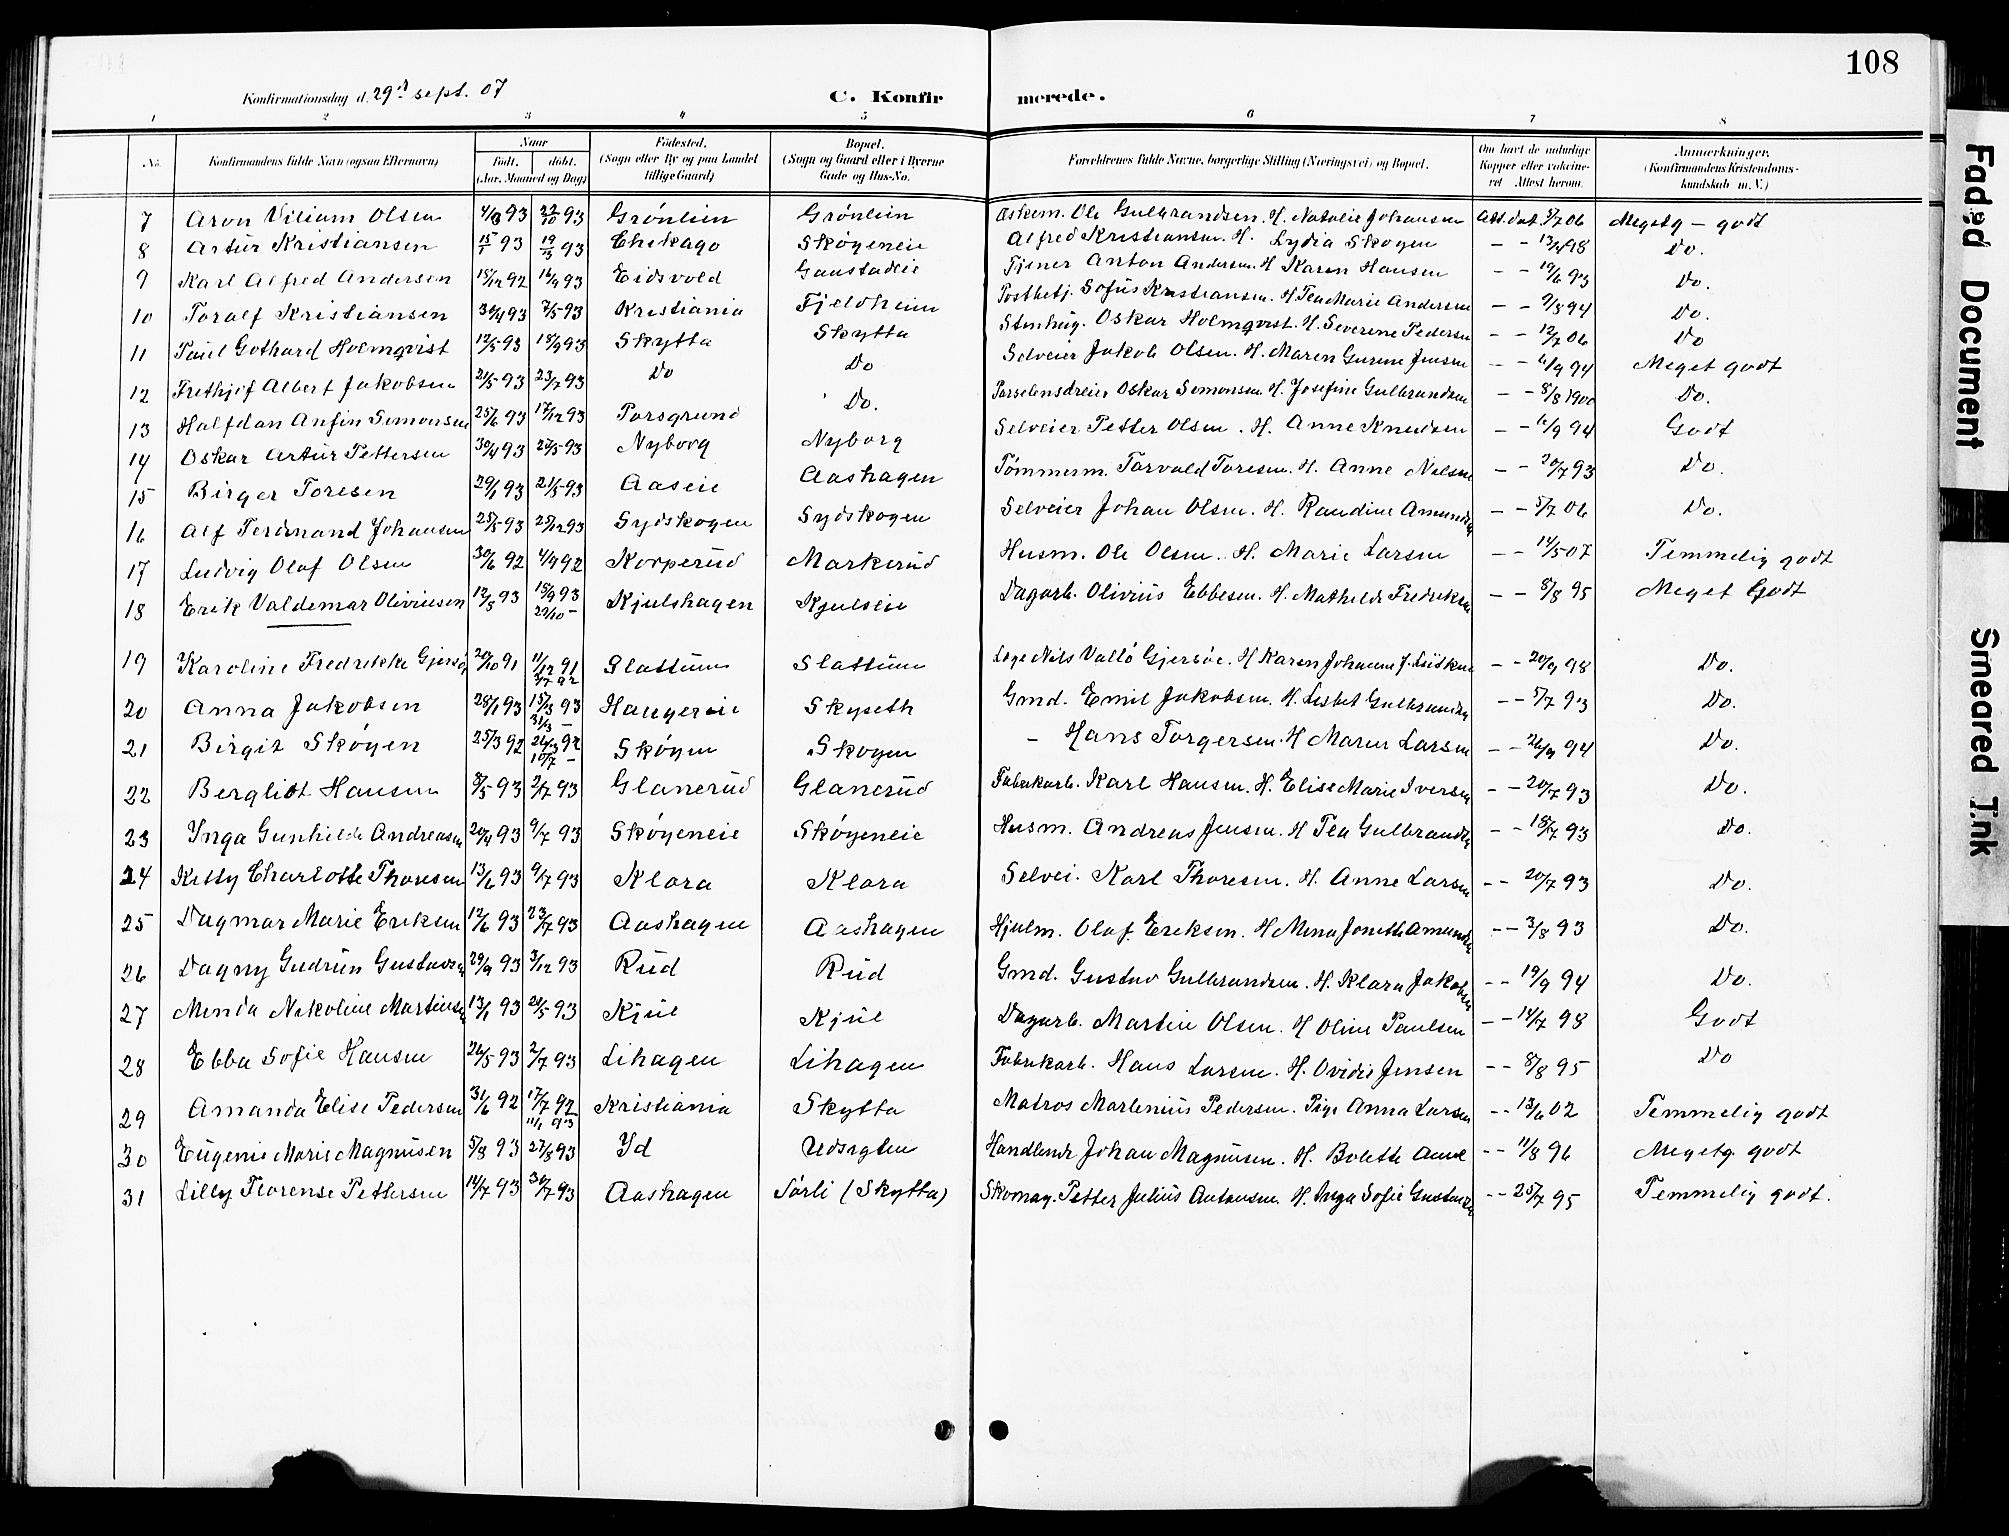 108
Konfirmationsdag d. 29d sept. 07 C. Konfirmerede.
1 2 3 4 5 6 7 8
No. Konfirmandens fulde Navn (ogsaa Efternavn) Naar født. døbt. (Aar, Maaned og Dag) Fødested. (Sogn eller By og paa Landet tillige Gaard) Bopæl. (Sogn og Gaard eller i Byerne Gade og Hus-No. Forældrenes fulde Navne, borgerlige Stilling (Næringsvei) og Bopæl. Om havt de naturlige Kopper eller vakcineret Attest herom. Anmærkninger. (Konfirmandens Kristendomskundskab m. V.)
7 Aron Viliam Olsen 4/8 93 22/10 93 Grønlien Grønlien Askem. Ole Gulbrandsen. H. Natalie Johansen Att. dat. 5/7 06 Megetg - godt
8 Artur Kristiansen 15/1 93 19/3 93 Chikago Skøyeneie Alfred Kristiansen. H. Lydia Skogen - - 13/9 98 Do.
9 Karl Alfred Andersen 18/12 92 16/4 93 Eidsvold Gaustadeie Tjener Anton Andersen. H Karen Hansen - - 19/6 93 Do.
10 Toralf Kristiansen 30/4 93 7/5 93 Kristiania Fjeldheim Postbetj. Sofus Kristiansen. H Tea Marie Andersen - - 9/8 94 Do.
11 Paul Gothard Holmqvist 12/5 93 18/9 93 Skytta Skytta Stenhug. Oskar Holmqvist. H. Severine Pedersen - - 12/7 06 Do
12 Frithjof Albert Jakobsen 21/5 93 23/7 93 Do Do Selveier Jakob Olsen. H. Maren Gurine Jensen - - 6/9 94 Meget godt
13 Halfdan Anfin Simonsen 25/6 93 17/12 93 Porsgrund Do. Porselensdreier Oskar Simonsen H. Josefine Gulbrandsen - - 8/8 1900 Do.
14 Oskar Artur Pettersen 30/4 93 22/5 93 Nyborg Nyborg Selveier Petter Olsen. H. Anne Knudsen - - 6/9 94 Godt
15 Birger Toresen 29/1 93 21/5 93 Aaseie Aashagen Tømmerm. Torvald Toresen. H. Anne Nilsen - - 20/7 93 Do.
16 Alf Ferdinand Johansen 25/5 93 25/12 93 Sydskogen Sydskogen Selveier Johan Olsen. H. Randine Amundsen - - 5/7 06 Do.
17 Ludvig Olaf Olsen 30/6 92 4/9 92 Korperud Markerud Husm. Ole Olsen. H. Marie Larsen - - 14/5 07 Temmelig godt
18 Erik Valdemar Oliviusen 12/5 93 18/9 93 29/10 - Kjulshagen Kjulseie Dagarb. Olivius Ebbesen. H. Mathilde Fredriksen - - 8/8 95 Meget Godt
19 Karoline Fredrikke Gjersøe 20/10 91 11/12 91 3/7 92 Slattum Slattum Læge Nils Vallø Gjersøe. H Karen Johanne J. - - 20/9 98 Do.
20 Anna Jakobsen 28/1 93 15/3 93 31/3 - Haugereie Skyseth Gmd. Emil Jakobsen. H. Lisbet Gulbrandsen - - 5/7 93 Do.
21 Birgit Skøyen 25/3 92 26/3 92 10/7 - Skøyen Skøyen - Hans Torgersen. H Maren Larsen - - 26/9 94 Do.
22 Bergliot Hansen 8/5 93 2/7 93 Glanerud Glanerud Fabrikarb. Karl Hansen. H. Elise Marie Iversen - - 20/7 93 Do.
23 Ynga Gunhilde Andreasen 20/4 93 9/7 93 Skøyeneie Skøyeneie Husm. Andreas Jensen. H Tea Gulbrandsen - - 18/7 93 Do.
24 Kitty Charlotte Thoresen 13/6 93 9/7 93 Klara Klara Selvei. Karl Thoresen. H. Anne Larsen - - 20/7 93 Do.
25 Dagmar Marie Eriksen 12/6 93 23/7 93 Aashagen Aashagen Hjulm. Olaf Eriksen. H Mina Jonette Amundsen - - 3/8 93 Do.
26 Dagny Gudrun Gustavsen 29/9 93 3/12 93 Rud Rud Gmd. Gustav Gulbrandsen. H. Klara Jakobsen - - 19/9 94 Do.
27 Minda Nikoline Martinsen 13/1 93 21/5 93 Kjul Kjul Dagarb. Martin Olsen. H Oline Paulsen - - 14/7 98 Godt
28 Ebba Sofie Hansen 26/5 93 2/7 93 Lihagen Lihagen Fabrikarb. Hans Larsen. H. Ovidie Jensen - - 8/8 95 Do
29 Amanda Elise Pedersen 31/6 92 17/7 92 11/1 93 Kristiania Skytta Matros Martinius Pedersen. Pige Anna Larsen - - 13/6 02 Temmelig godt
30 Eugenie Marie Magnusen 5/8 93 27/8 93 Yd Udsigten Handlende Johan Magnusen. H. Bolette - - 11/8 96 Megetg godt
31 Lilly Florense Pettersen 14/7 93 30/7 93 Aashagen Sørli (Skytta) Skomag. Petter Julius Antonsen H. Inga Sofie Gustavsen - - 25/7 95 Temmelig godt.
Faded Document
Smeared Ink